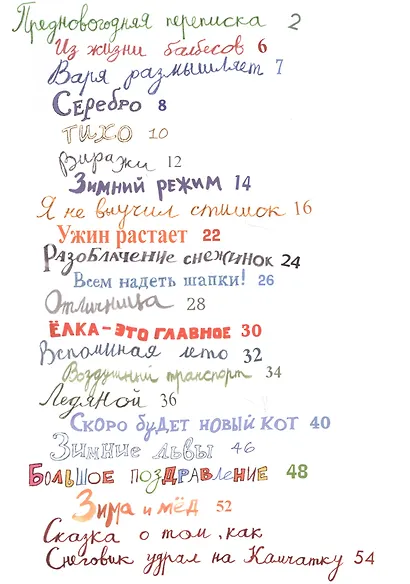 Предновогодняя переписка 2
Из жизни балбесов 6
Варя размышляет 7
Серебро 8
ТИХО 10
Виражи 12
Зимний режим 14
Я не выучил стишок 16
Ужин растает 22
Разоблачение снежинок 24
Всем надеть шапки! 26
Отличница 28
ЁЛКА-ЭТО ГЛАВНОЕ 30
Вспоминая лето 32
Воздушный транспорт 34
Ледяной 36
Скоро будет новый кот 40
Зимние львы 46
Большое поздравление 48
Зима и мёд 52
Сказка о том, как
Снеговик удрал на Камчатку 54